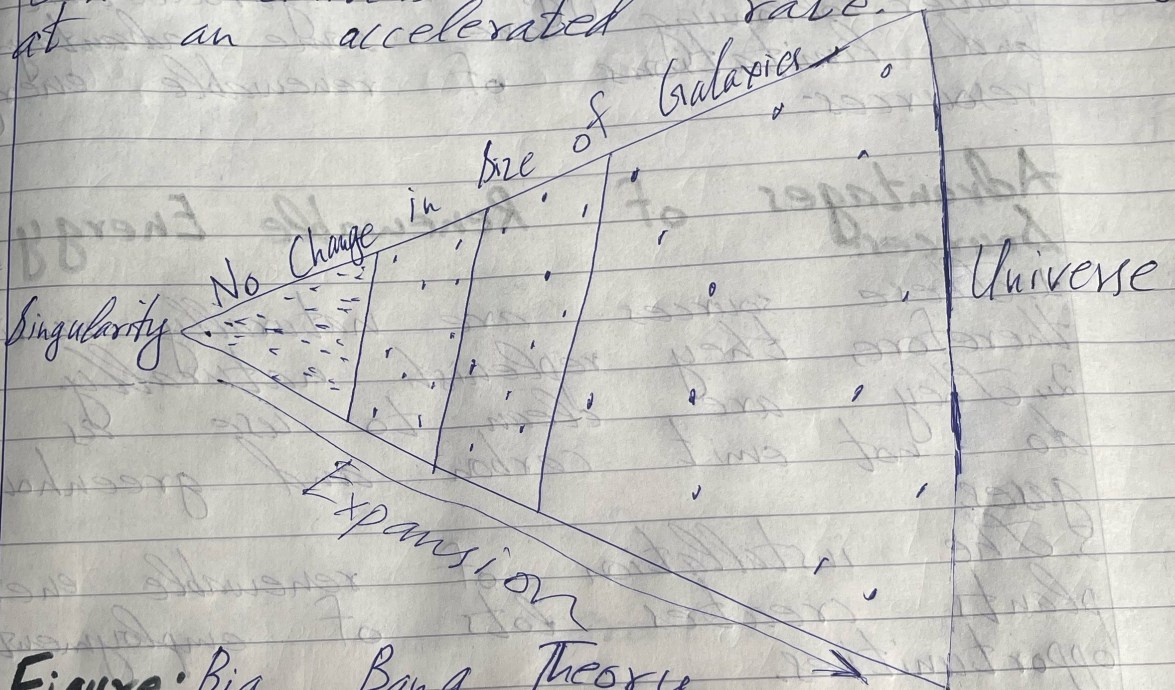 at an accelerated rate.
No Change in Size of Galaxies
Singularity
Universe
Expansion
Figure: Big Bang Theory